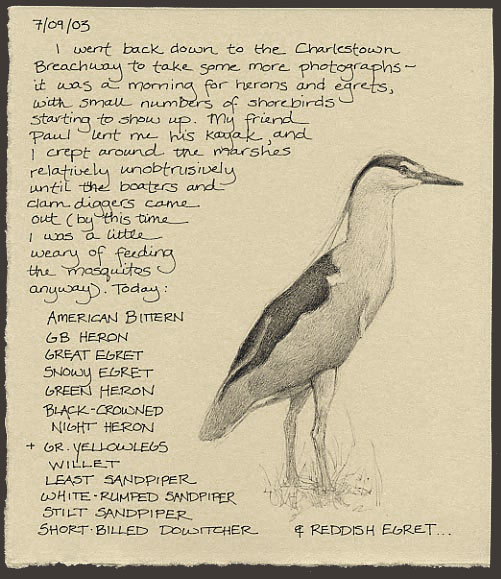 7/09/03
I went back down to the Charlestown
Breachway to take some more photographs –
it was a morning for herons and egrets,
with small numbers of shorebirds
starting to show up. My friend
Paul lent me his kayak, and
I crept around the marshes
relatively unobtrusively
until the boaters and
clam diggers came
out (by this time
I was a little
weary of feeding
the mosquitos
anyway). Today:
AMERICAN BITTERN
GB HERON
GREAT EGRET
SNOWY EGRET
GREEN HERON
BLACK-CROWNED
NIGHT HERON
+ GR. YELLOWLEGS
WILLET
LEAST SANDPIPER
WHITE-RUMPED SANDPIPER
STILT SANDPIPER
SHORT-BILLED DOWITCHER & REDDISH EGRET...